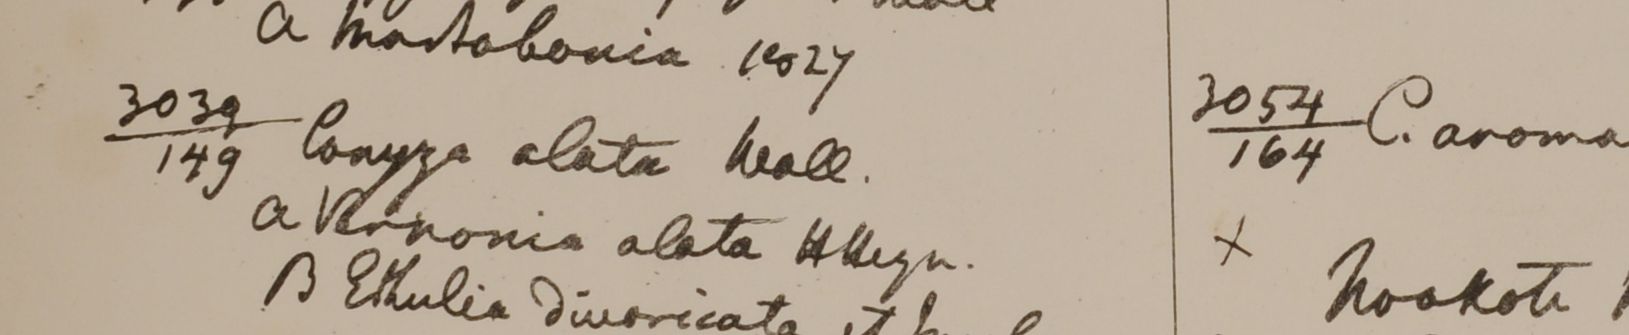 a Martabania 1827
3039/149 Conyza alata Wall.
a Vernonia alata HHeyn.
B Ethulia divaricata et
3054/164 C. aroma
x
Noakote